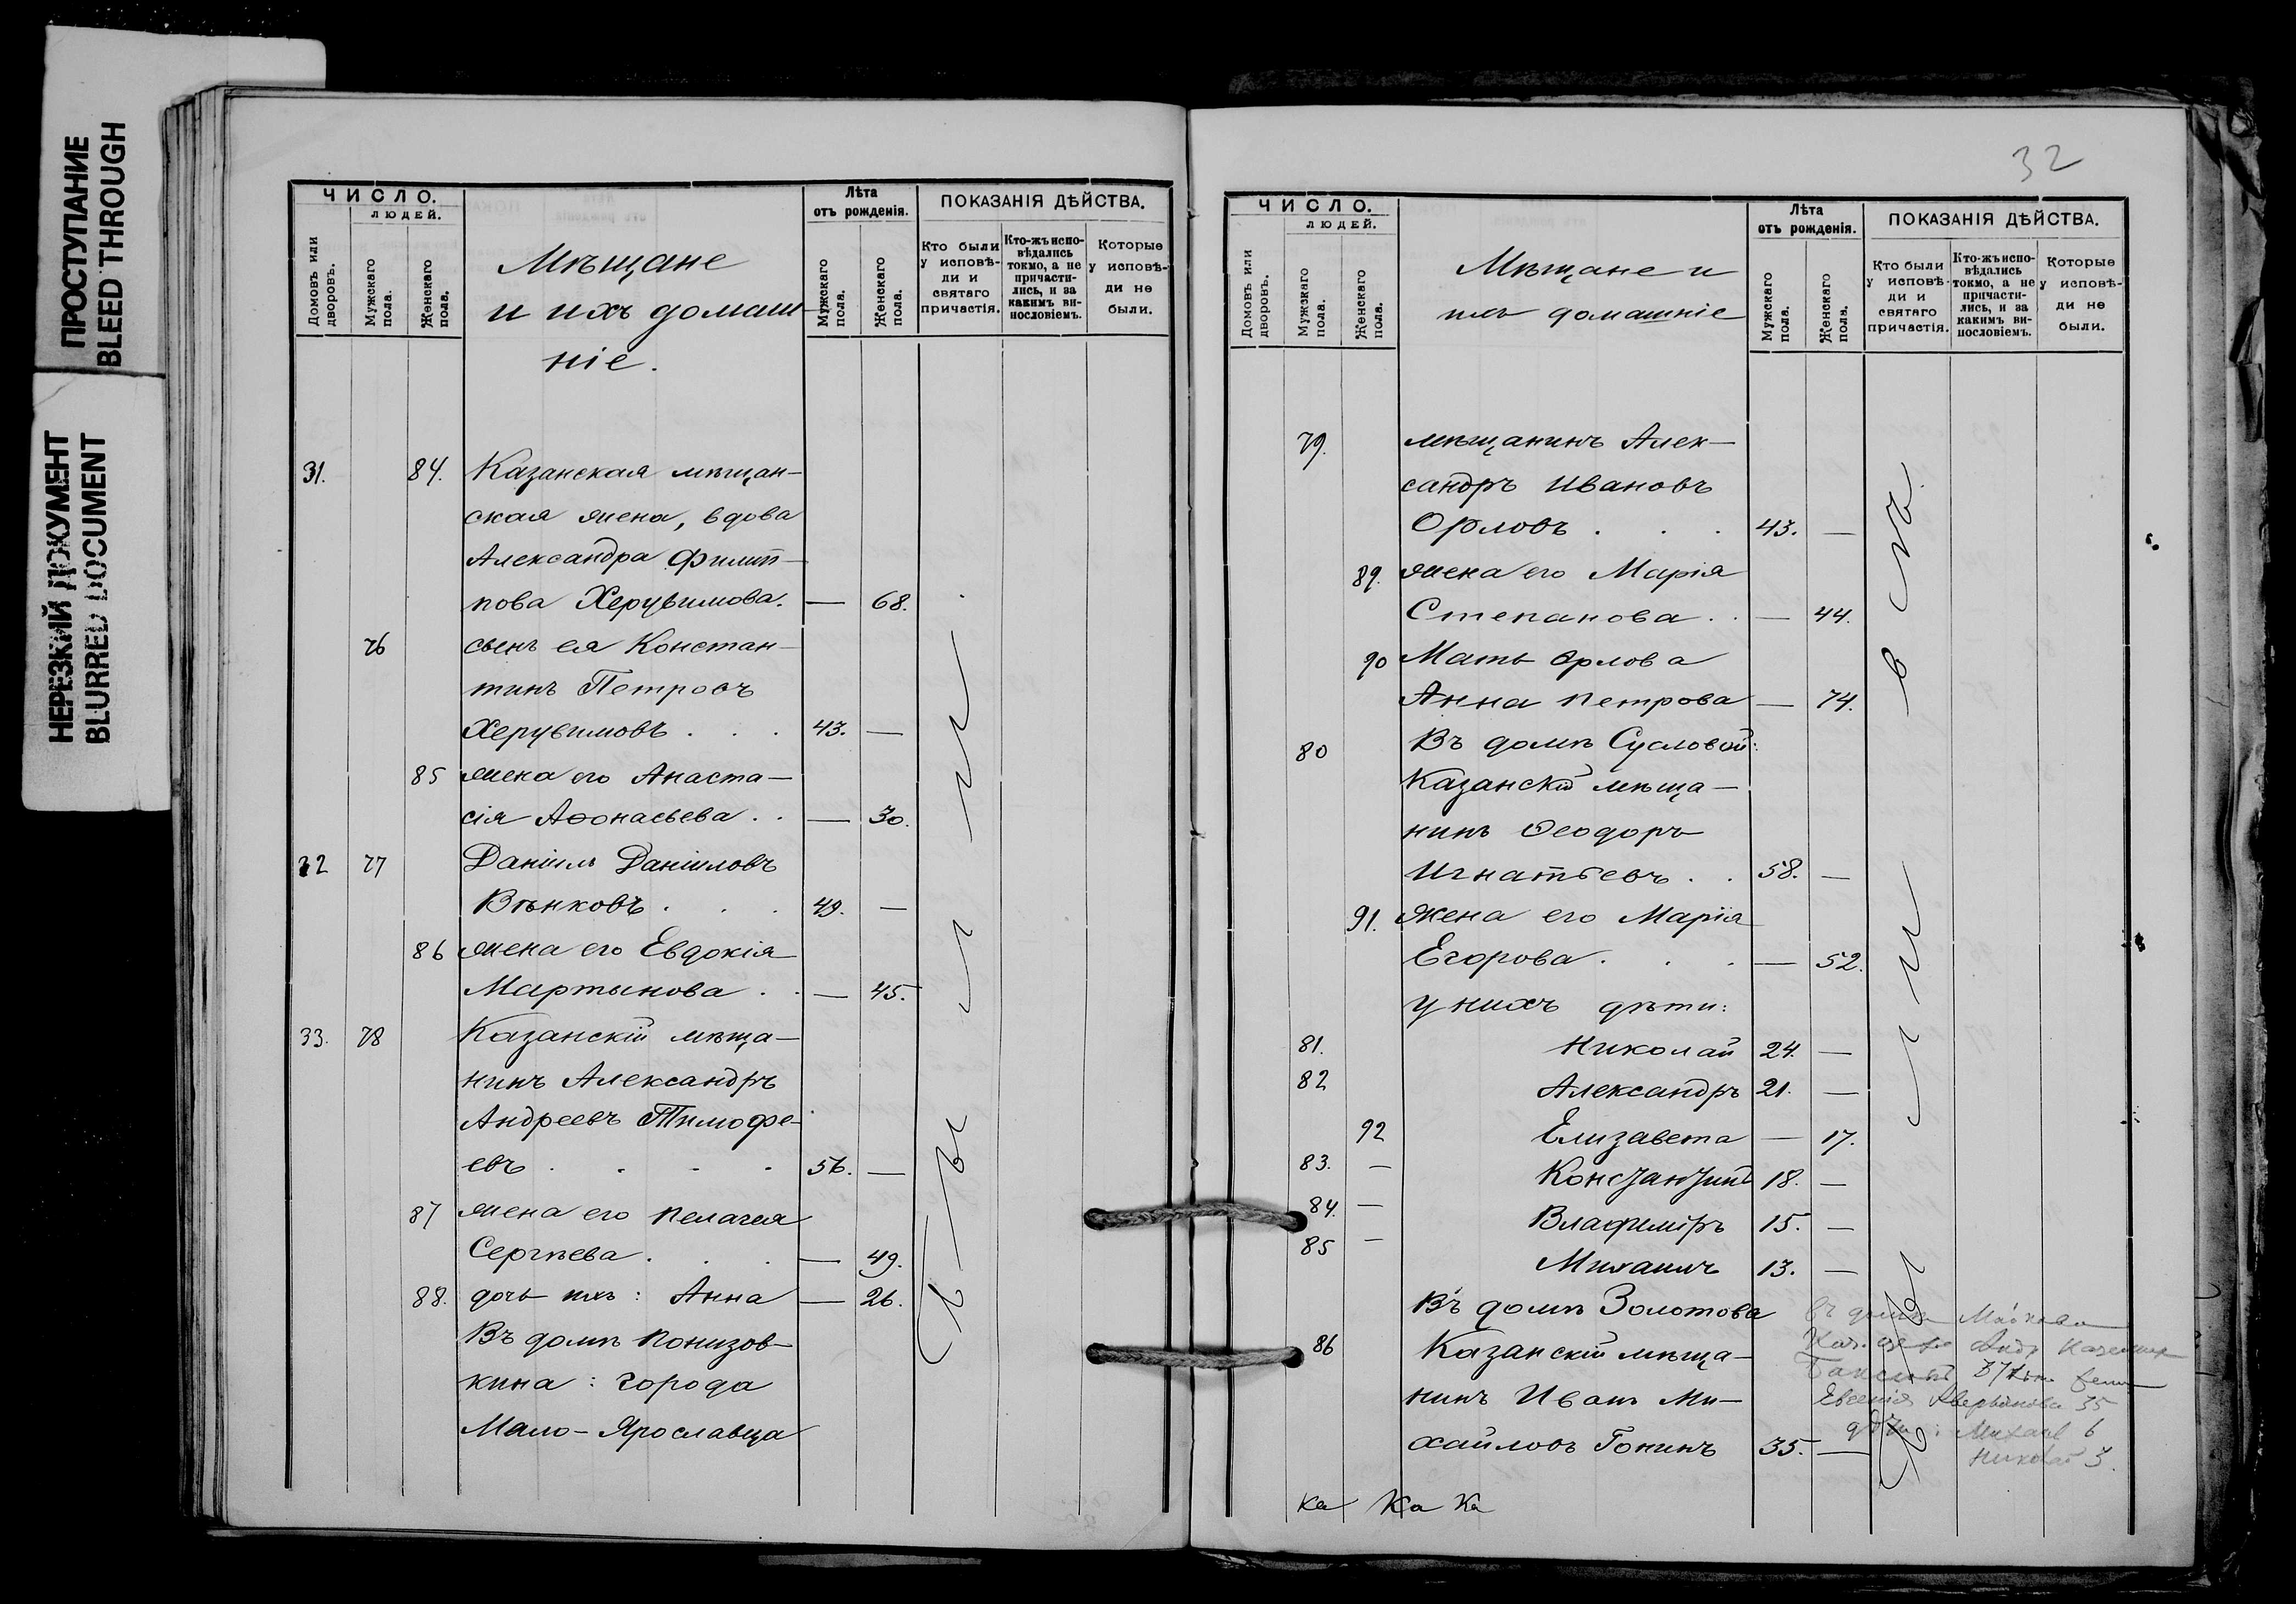 ПРОСТУПАНИЕ
BLEED THROUGH
НЕРЕЗКИЙ ДОКУМЕНТ
BLURRED DOCUMENT
ЧИСЛО.
ЛЮДЕЙ.
Домовъ или дворовъ.
Мужскаго пола.
Женскаго пола.
Мѣщане
и ихъ домаш-
ніе.
Лѣта
отъ рожденія.
Мужскаго пола.
Женскаго пола.
ПОКАЗАНІЯ ДѢЙСТВА.
Кто были у исповѣ-ди и святаго причастія.
Кто-жъ испо-вѣдались токмо, а не причасти-лись, и за какимъ ви-нословіемъ.
Которые у исповѣ-ди не были.
31. 84. Казанская мѣщан-
ская жена, вдова
Александра Филип-
пова Херувимова. — 68.
76 сынъ ея Констан-
тинъ Петровъ
Херувимовъ . . . 43. —
85 жена его Анаста-
сія Аѳонасьева . . — 30.
32 77 Даніилъ Даніиловъ
Вѣнковъ . . . 49. —
86 жена его Евдокія
Мартынова . . — 45.
33. 78 Казанскій мѣща-
нинъ Александръ
Андреевъ Тимофе-
евъ . . . . 56. —
87 жена его Пелагея
Сергѣева . . . — 49.
88. дочь ихъ: Анна — 26.
Въ домѣ Понизов-
кина: города
Мало-Ярославца
Были
32
ЧИСЛО.
ЛЮДЕЙ.
Домовъ или дворовъ.
Мужскаго пола.
Женскаго пола.
Мѣщане и
ихъ домашніе
Лѣта
отъ рожденія.
Мужскаго пола.
Женскаго пола.
ПОКАЗАНІЯ ДѢЙСТВА.
Кто были у исповѣ-ди и святаго причастія.
Кто-жъ испо-вѣдались токмо, а не причасти-лись, и за какимъ ви-нословіемъ.
Которые у исповѣ-ди не были.
79. мѣщанинъ Алек-
сандръ Ивановъ
Орловъ . . . 43. —
89. жена его Марія
Степанова . . — 44.
90 Мать Орлова
Анна Петрова — 74.
80 Въ домѣ Сусловой:
Казанскій мѣща-
нинъ Ѳеодоръ
Игнатьевъ . . 58. —
91. жена его Марія
Егорова . . . — 52.
у нихъ дѣти:
81. Николай 24. —
82 Александръ 21. —
92 Елизавета — 17.
83. — Константинъ 18. —
84. — Владиміръ 15. —
85 — Михаилъ 13. —
Въ домѣ Золотова
86 Казанскій мѣща-
нинъ Иванъ Ми-
хайловъ Гонинъ 35. —
Были
въ домѣ
Евгенія Аверьянова 35
дѣти: Михаил 6
Николай 3.
Ка Ка Ка